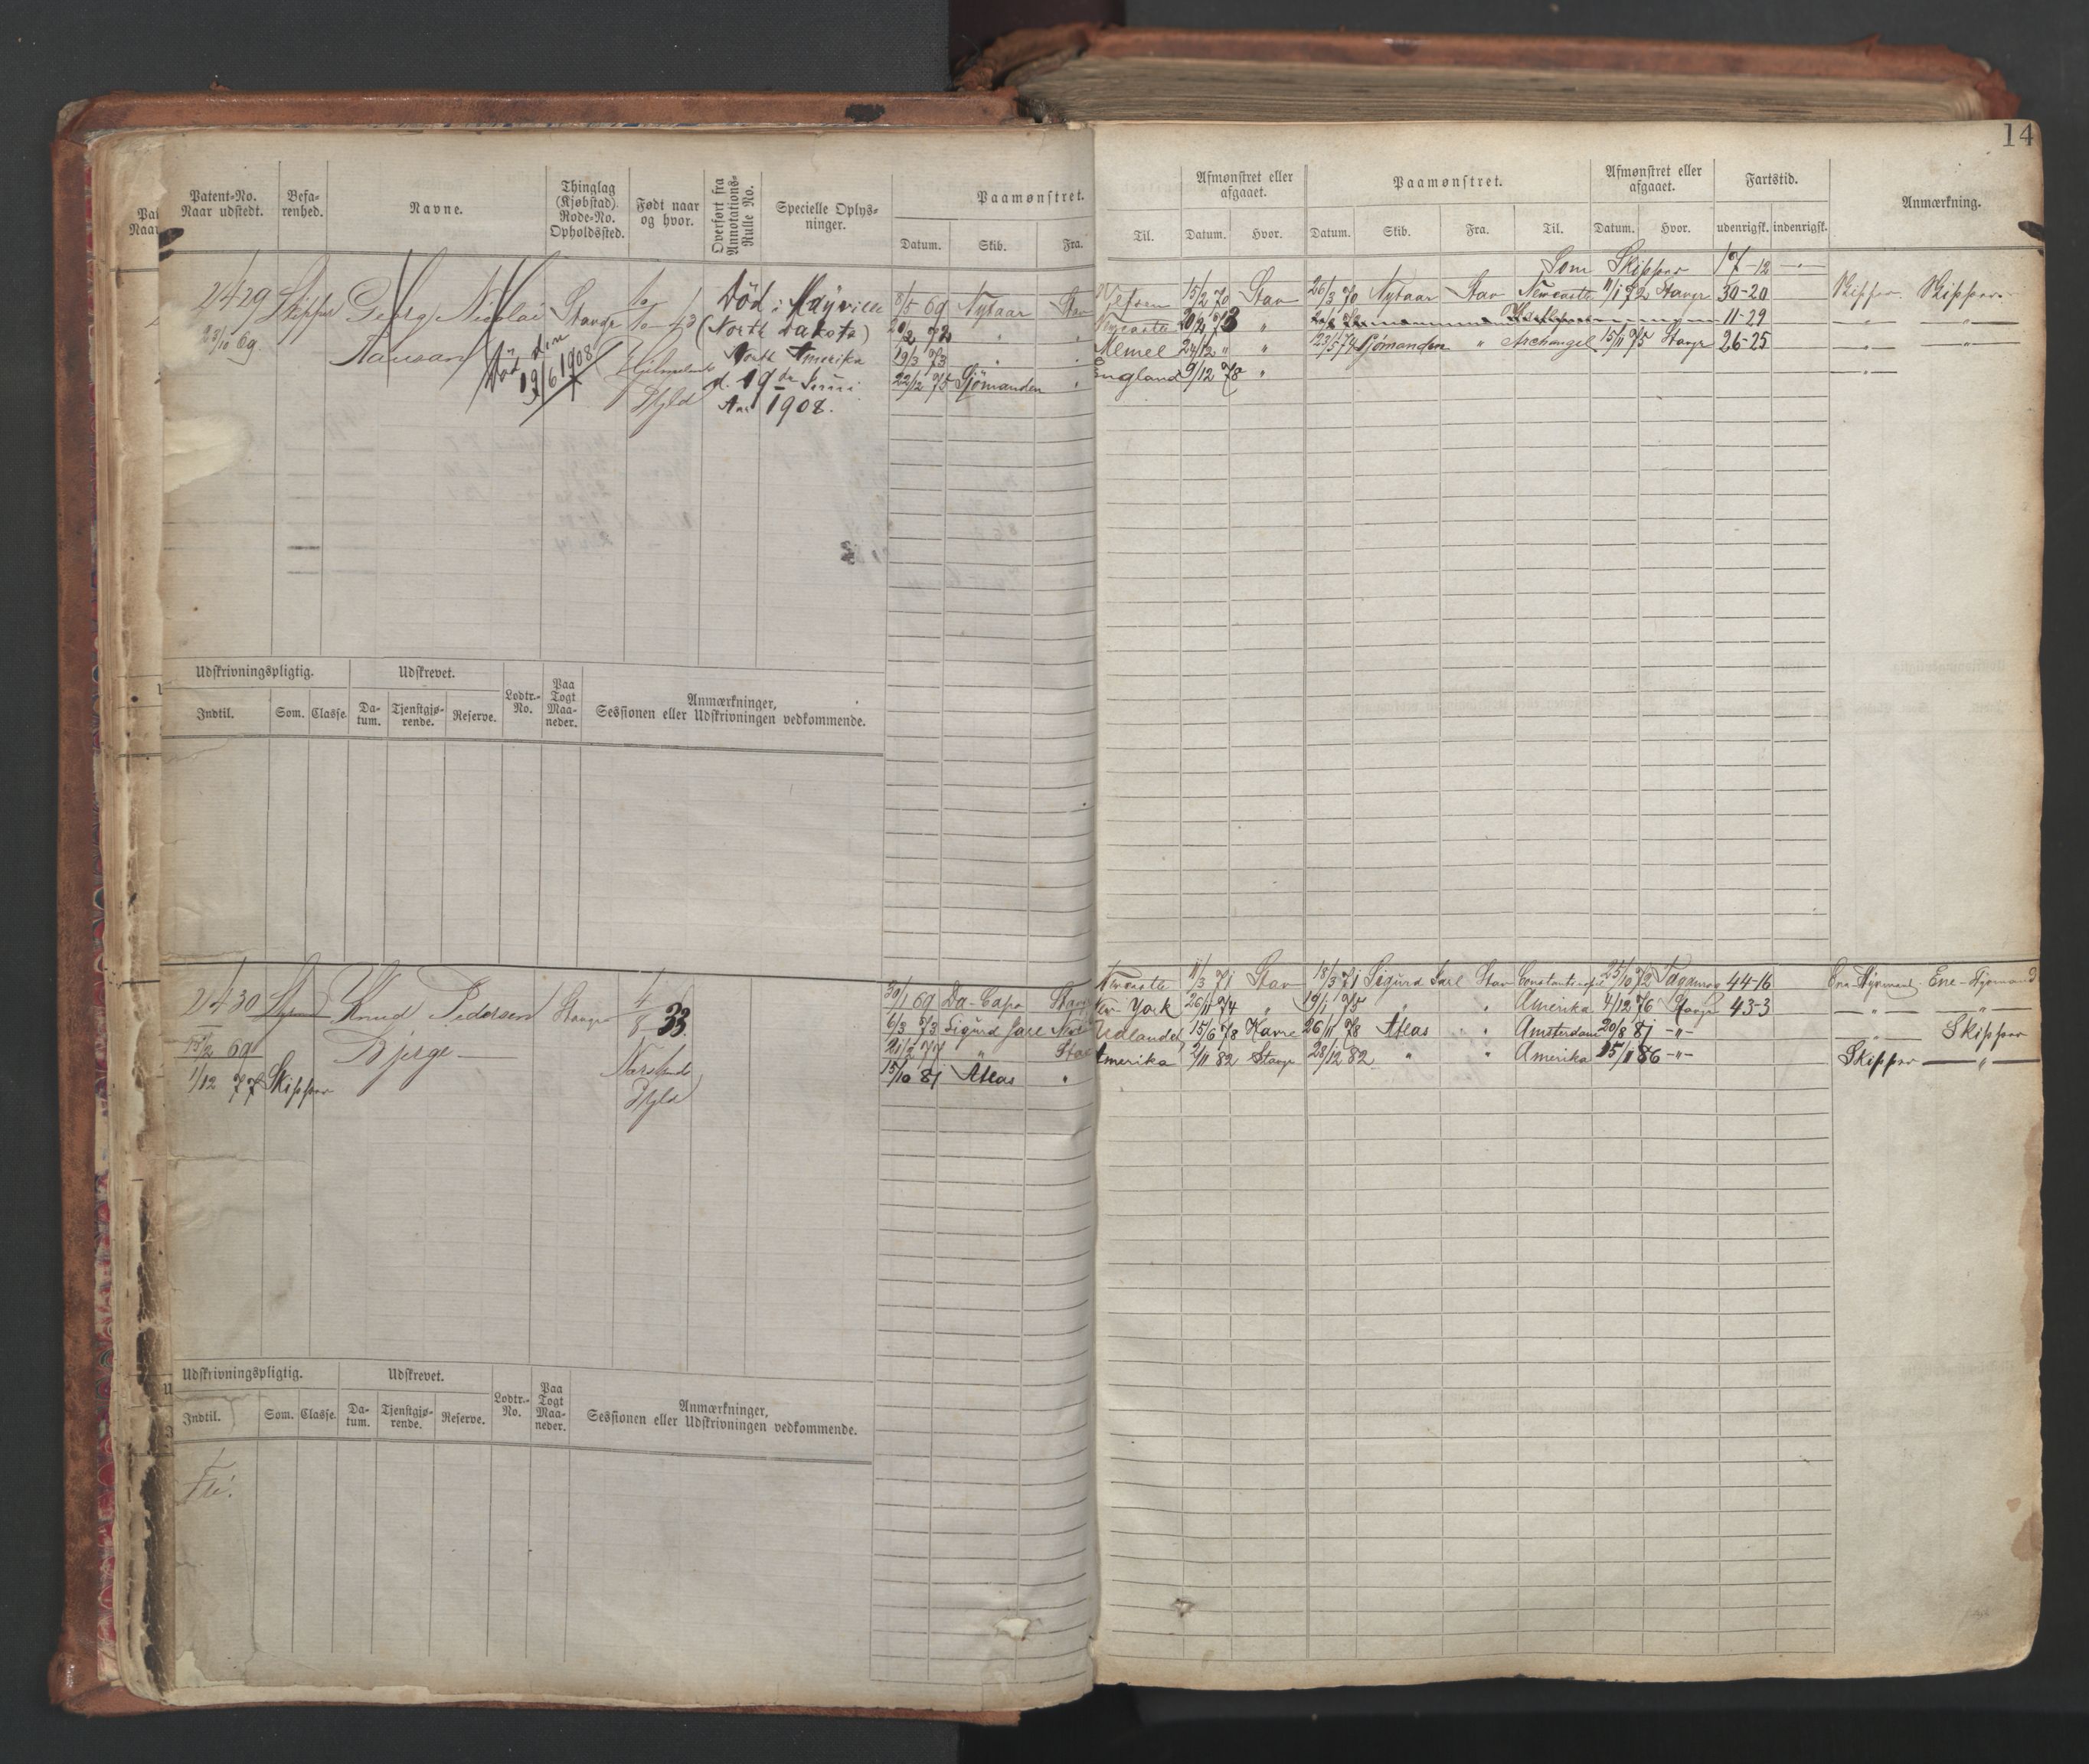 14
Patent-No. Naar udstedt. Befa-renhed. Navne. Thinglag (Kjøbstad). Rode-No. Opholdssted. Født naar og hvor. Overført fra Annotations-Rulle No. Specielle Oplys-ninger. Paamønstret. Afmønstret eller afgaaet. Paamønstret. Afmønstret eller afgaaet. Fartstid. Anmærkning.
Datum. Skib. Fra. Til. Datum. Hvor. Datum. Skib. Fra. Til. Datum. Hvor. udenrigsk. indenrigsk.
Som Skipper 17-12
2429 Skipper Georg Nicolai Stavgr Død i Mayville 69 Nytaar Stav 15/2 70 Stav 26/3 70 Nytaar Stav Newcastle Stavgr 30-20 Skipper Skipper
23/10 69 (North Dakota) 72 " " 11-29
Død den 19/6 1908 North Amerika 19/3 73 " " Memel 24/12 " " Sjömanden " Archangel 15/11 75 Stavgr 26-25
d. 19de Juni 22/12 75 Sjömanden " England 9/12 78 "
Fyld Aar 1908.
Udskrivningspligtig. Udskrevet. Lodtr.-No. Paa Togt Maa-neder. Anmærkninger, Sessionen eller Udskrivningen vedkommende.
Indtil. Som. Classe. Da-tum. Tjenstgjø-rende. Reserve.
2430 Knud Pedersen Stavgr 4/8 33 69 Da-Capo Stavgr Newcastle 11/3 71 Stav 18/3 71 Sigurd Jarl Stav 25/10 72 44-16
Bjerge 6/3 73 Sigurd Jarl New York 26/11 74 " 19/1 75 " " Amerika 4/12 76 Stavgr 43-3
15/2 69 " Stav Udlandet 15/6 78 Havre 26/11 78 Atlas " Amsterdam 20/8 81 -"- Skipper
1/12 77 Skipper Fyld 15/10 81 Atlas " Amerika 2/11 82 Stavgr 28/12 82 " " Amerika 15/1 86 -"- Skipper -"-
Udskrivningspligtig. Udskrevet. Lodtr.-No. Paa Togt Maa-neder. Anmærkninger, Sessionen eller Udskrivningen vedkommende.
Indtil. Som. Classe. Da-tum. Tjenstgjø-rende. Reserve.